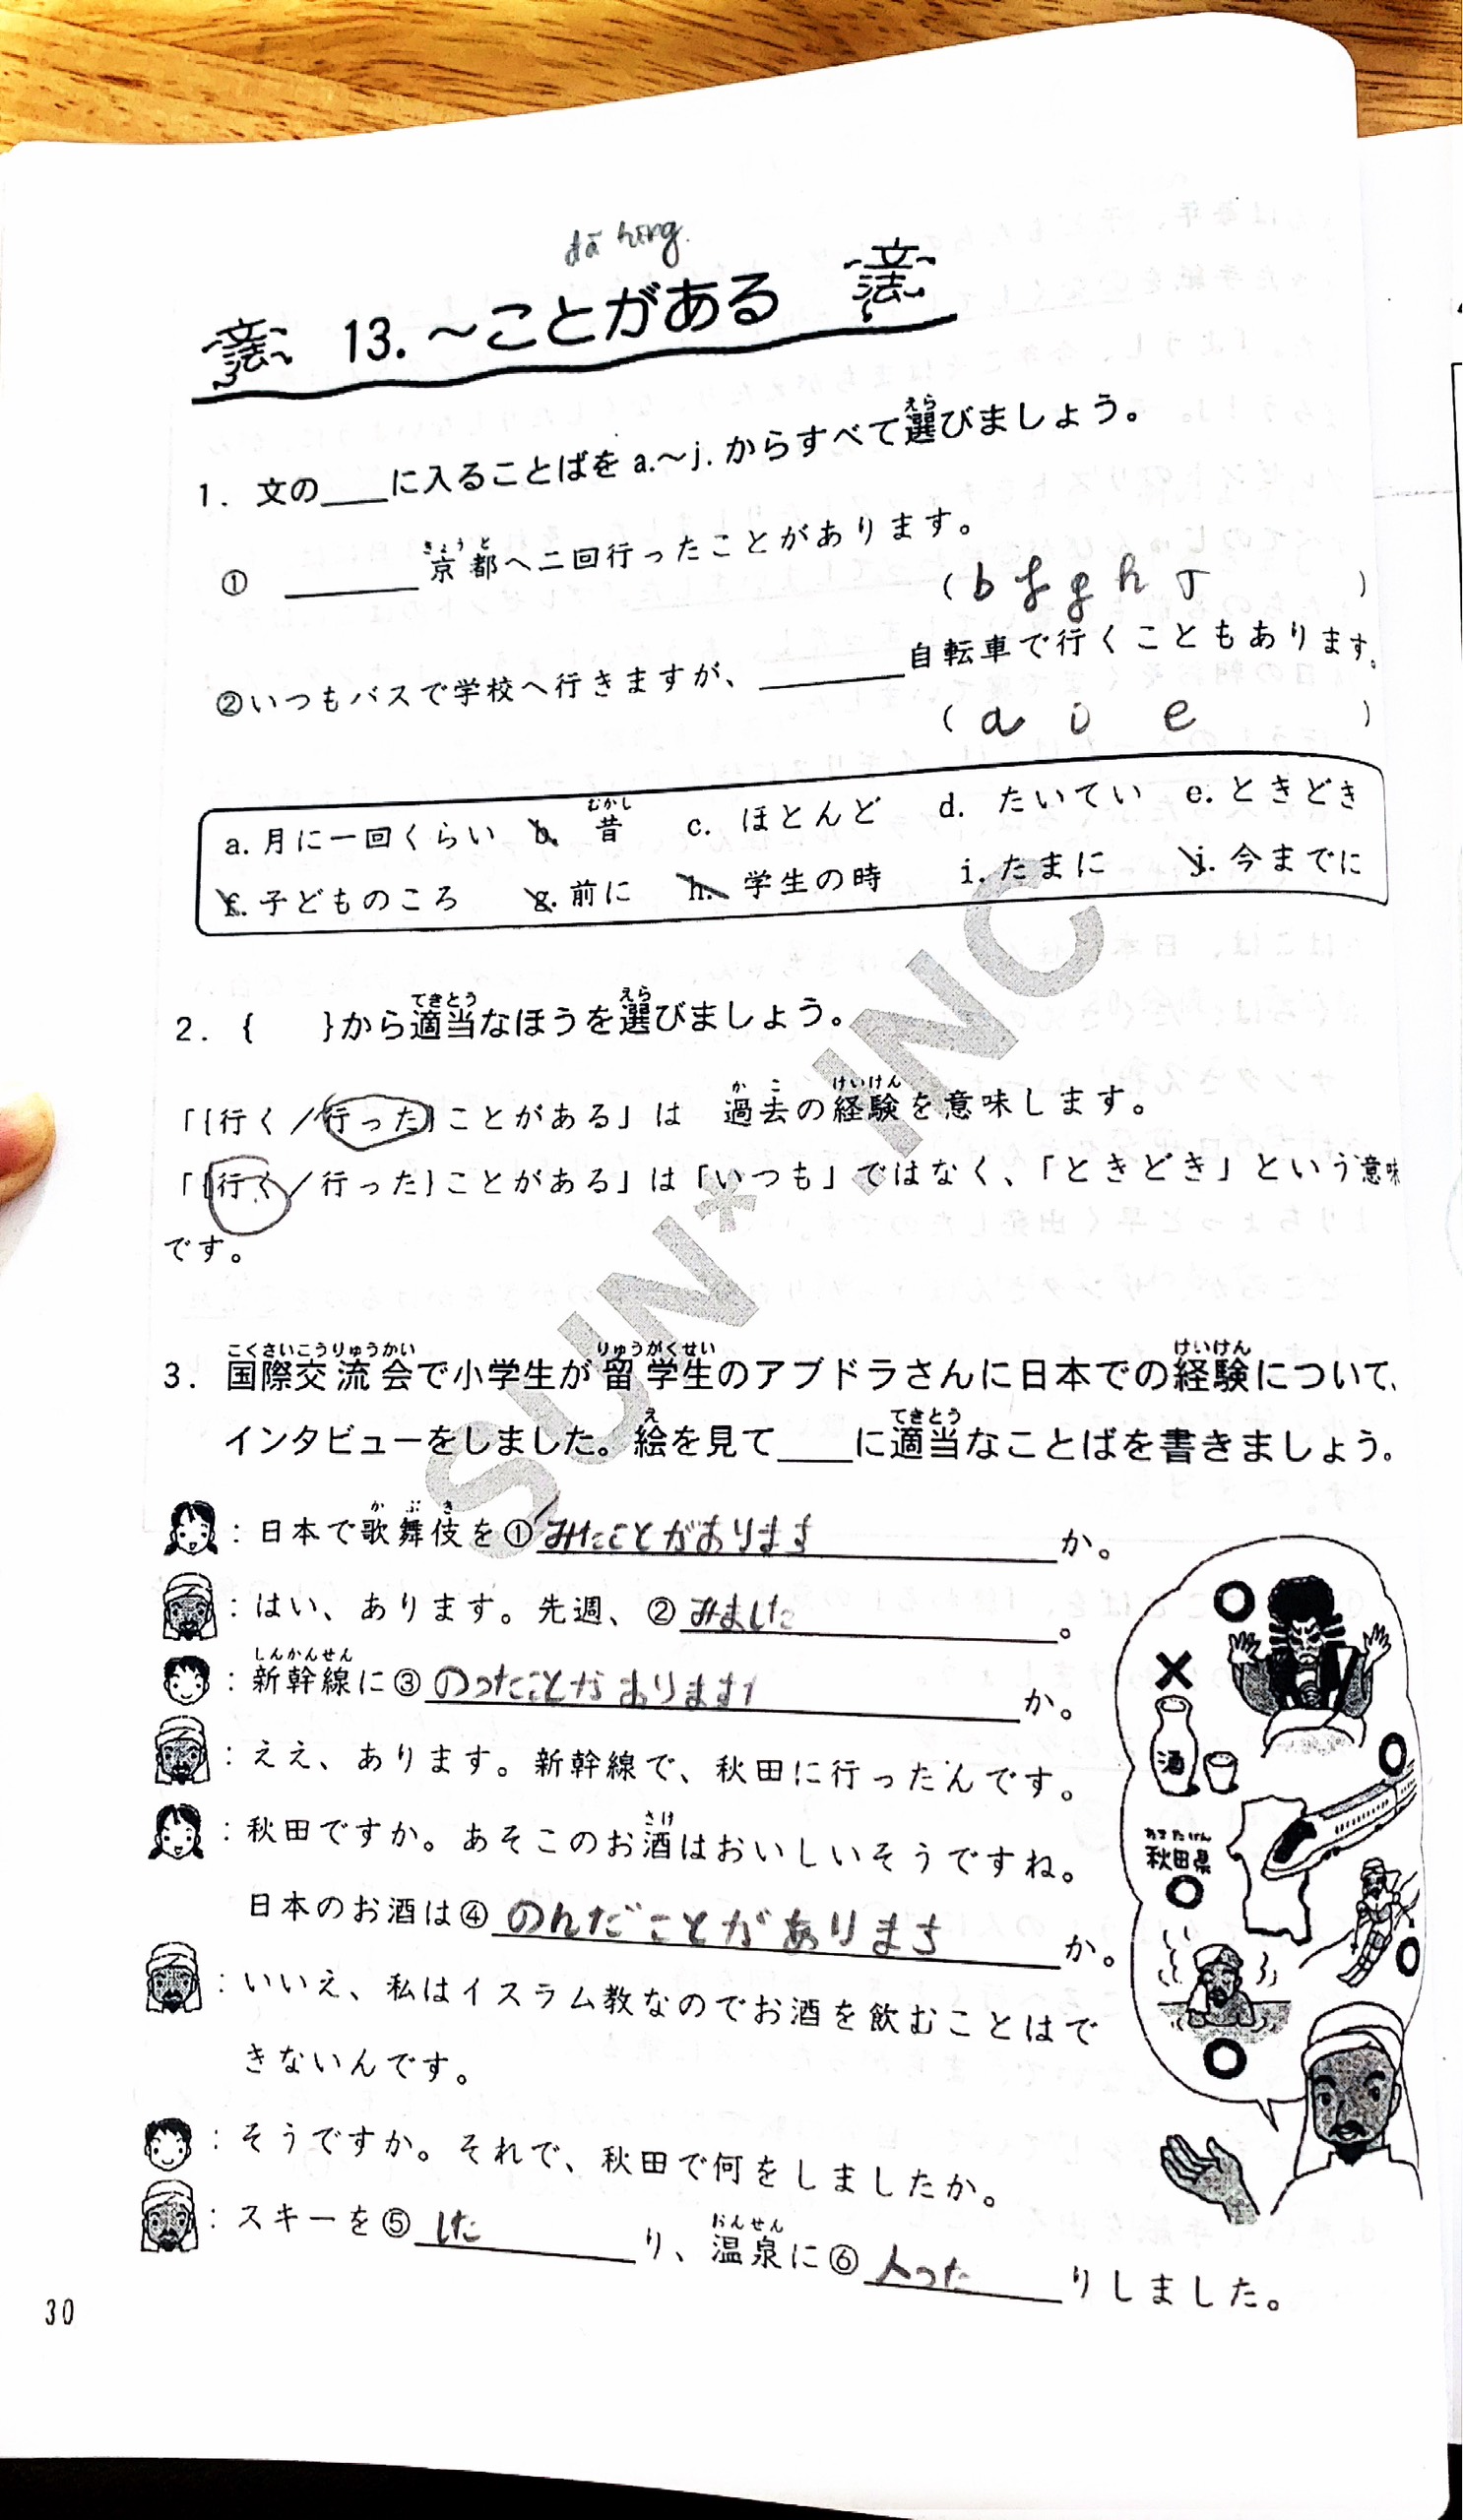 đã từng.
文法 13. ～ことがある 文法
1. 文の____に入ることばを a.～j. からすべて選びましょう。
① ______京都へ二回行ったことがあります。
( b f g h J )
②いつもバスで学校へ行きますが、______自転車で行くこともあります。
( a i e )
a. 月に一回くらい b. 昔 c. ほとんど d. たいてい e. ときどき
f. 子どものころ g. 前に h. 学生の時 i. たまに j. 今までに
2. { }から適当なほうを選びましょう。
「{行く／行った}ことがある」は 過去の経験を意味します。
「{行く／行った}ことがある」は「いつも」ではなく、「ときどき」という意味
です。
3. 国際交流会で小学生が留学生のアブドラさんに日本での経験について、
インタビューをしました。絵を見て____に適当なことばを書きましょう。
：日本で歌舞伎を①みたことがありますか。
：はい、あります。先週、②みました。
：新幹線に③のったことがありますか。
：ええ、あります。新幹線で、秋田に行ったんです。
：秋田ですか。あそこのお酒はおいしいそうですね。
日本のお酒は④のんだことがありますか。
：いいえ、私はイスラム教なのでお酒を飲むことはで
きないんです。
：そうですか。それで、秋田で何をしましたか。
：スキーを⑤したり、温泉に⑥入ったりしました。
酒
秋田県
30
SUN* INC